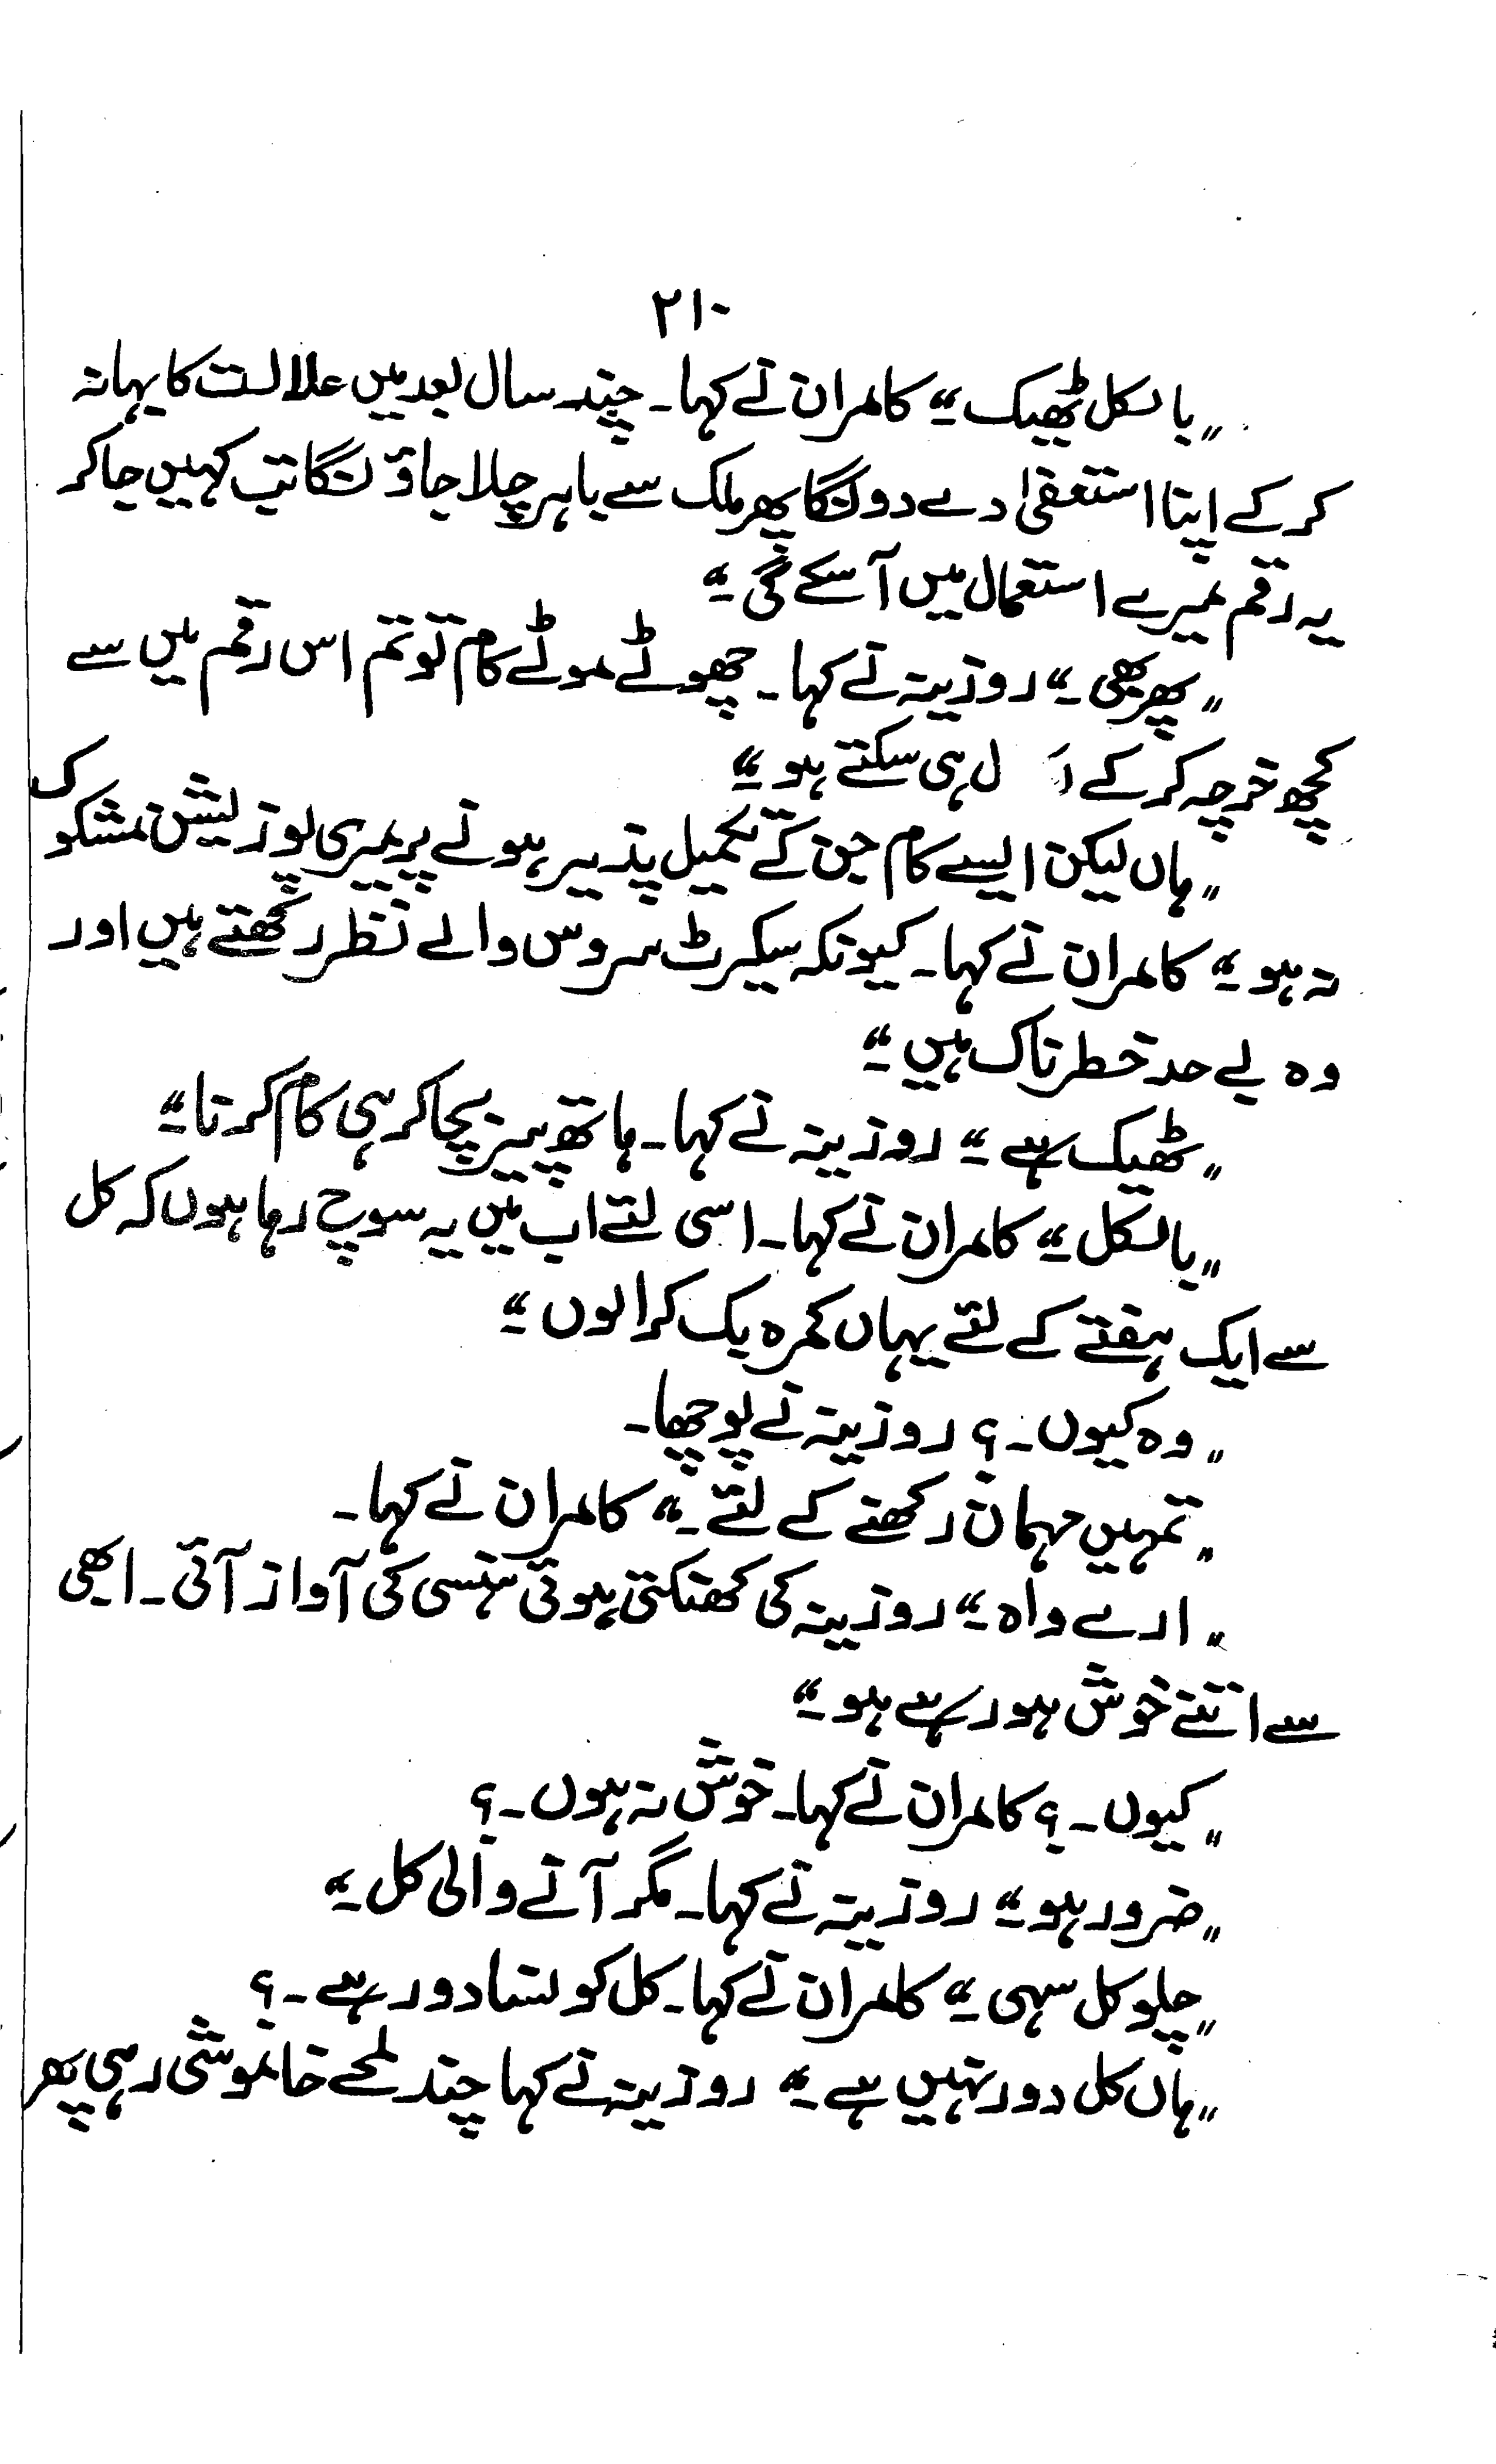 ۲۱۰
"بالکل ٹھیک۔" کامران نے کہا۔ چند سال بعد میں علالت کا بہانہ
کر کے اپنا استعفیٰ دے دونگا پھر ملک سے باہر چلا جاؤنگا تب کہیں جا کر
یہ رقم میرے استعمال میں آ سکے گی۔"
"پھر بھی۔" روزینہ نے کہا۔ چھوٹے موٹے کام تو تم اس رقم میں سے
کچھ خرچہ کر کے ل ہی سکتے ہو۔"
"ہاں لیکن ایسے کام جن کے تکمیل پذیر ہونے پر میری پوزیشن مشکوک
نہ ہو۔" کامران نے کہا۔ کیونکہ سیکرٹ سروس والے نظر رکھتے ہیں اور
وہ بے حد خطرناک ہیں۔"
"ٹھیک ہے۔" روزینہ نے کہا۔ ہاتھ پیر بچا کر ہی کام کرنا۔"
"بالکل۔" کامران نے کہا۔ اسی لئے اب میں یہ سوچ رہا ہوں کہ کل
سے ایک ہفتے کے لئے یہاں کمرہ بک کرا لوں۔"
"وہ کیوں۔؟ روزینہ نے پوچھا۔
"تمہیں مہمان رکھنے کے لئے۔" کامران نے کہا۔
"ارے واہ۔" روزینہ کی کھنکتی ہوئی ہنسی کی آواز آئی۔ ابھی
سے اتنے خوش ہو رہے ہو۔"
"کیوں۔؟ کامران نے کہا۔ خوش نہ ہوں۔؟
"ضرور ہو۔" روزینہ نے کہا۔ مگر آنے والی کل۔"
"چلو کل سہی۔" کامران نے کہا۔ کل کونسا دور ہے۔؟
"ہاں کل دور نہیں ہے۔" روزینہ نے کہا چند لمحے خاموشی رہی پھر